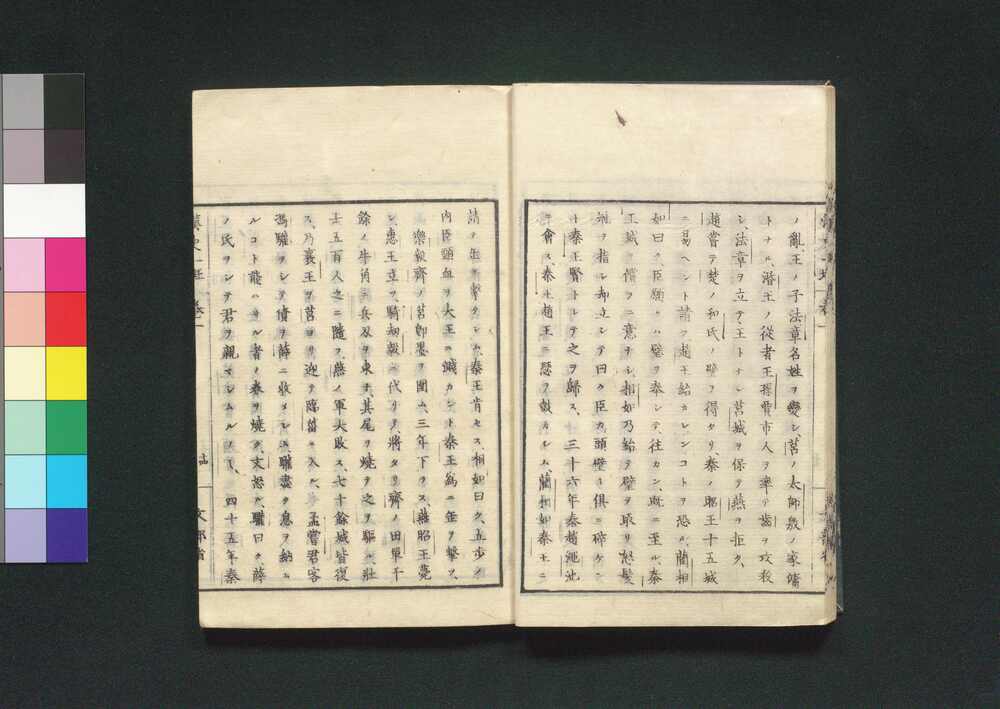 ノ亂、王ノ子法章名姓ヲ變シ、莒ノ太師敫ノ家傭
トナル、湣王ノ從者王孫賈市人ヲ率テ齒ヲ攻殺
シ、法章ヲ立テ王トナシ、莒城ヲ保テ燕ヲ拒ク、
趙嘗テ楚ノ和氏ノ璧ヲ得タリ、秦ノ昭王十五城
ニ易ヘント請フ、趙王紿カレンコトヲ恐ル、藺相
如曰ク、臣願クハ璧ヲ奉シテ、往カン、既ニ至ル、秦
王城ヲ償フニ意ナシ、相如乃紿テ璧ヲ取リ、怒髮
冠ヲ指シ、却立シテ曰ク、臣カ頭璧ト俱ニ碎ケン
ト、秦王賢トシテ之ヲ歸ス、三十六年秦趙澠池
ニ會ス、秦王趙王ニ瑟ヲ鼓カシム、藺相如秦王ニ
請ヲ缶ヲ擊タシム、秦王肯セス、相如曰ク、五步ノ
内臣頸血ヲ大王ニ濺カント、秦王爲ニ缶ヲ擊ツ、
樂毅齊ノ莒卽墨ヲ圍ム、三年下ラス、燕昭王薨
シ、惠王立ツ、騎劫毅ニ代リテ、將タリ、齊ノ田單千
餘ノ牛角ニ兵刄ヲ束子、其尾ヲ燒テ之ヲ驅ル、壯
士五百人之ニ隨フ、燕ノ軍大敗ス、七十餘城皆復
ス、乃襄王ヲ莒ヨリ迎テ臨菑ニ入ル、孟嘗君客
馮驩ヲシテ債ヲ薛ニ收メシム、驩盡ク息ヲ納ルヽ
ルコト能ハサル者ノ券ヲ燒ク、文怒ル、驩曰ク、薛
ノ民ヲシテ君ヲ親マシムルノミ、四十五年秦
文部省